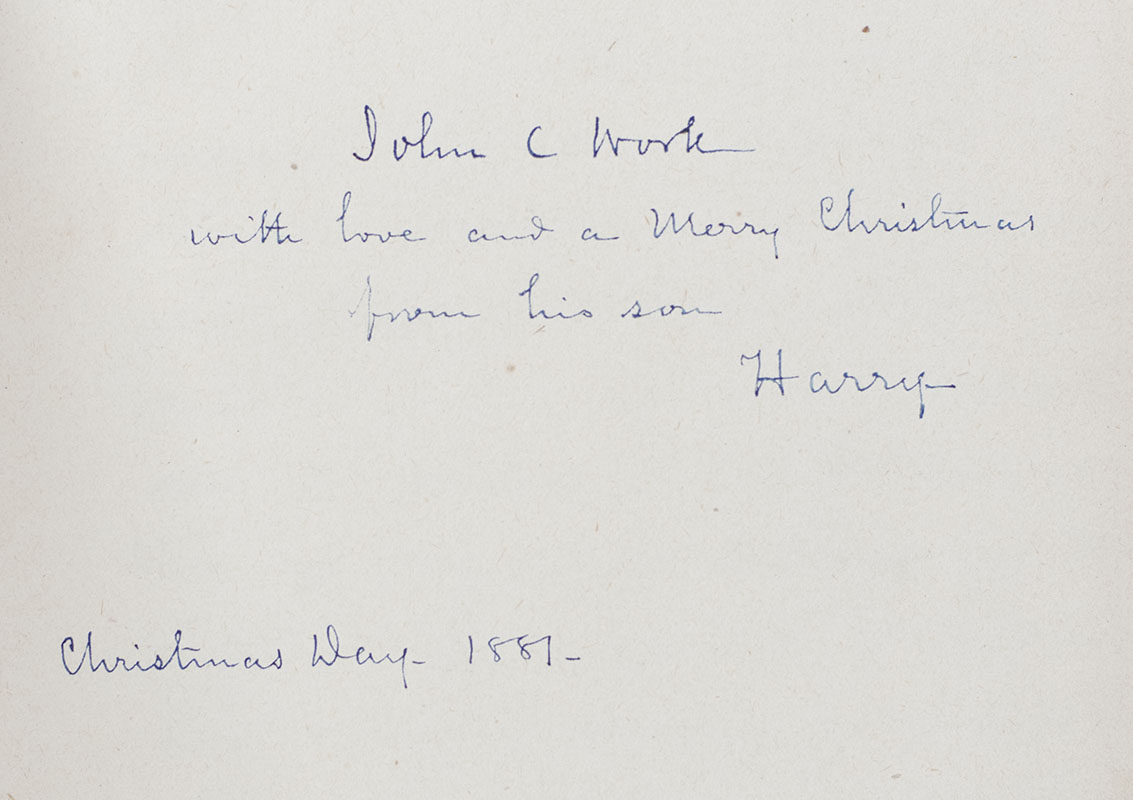 John C Work
with love and a Merry Christmas
from his son
Harry
Christmas Day 1881-